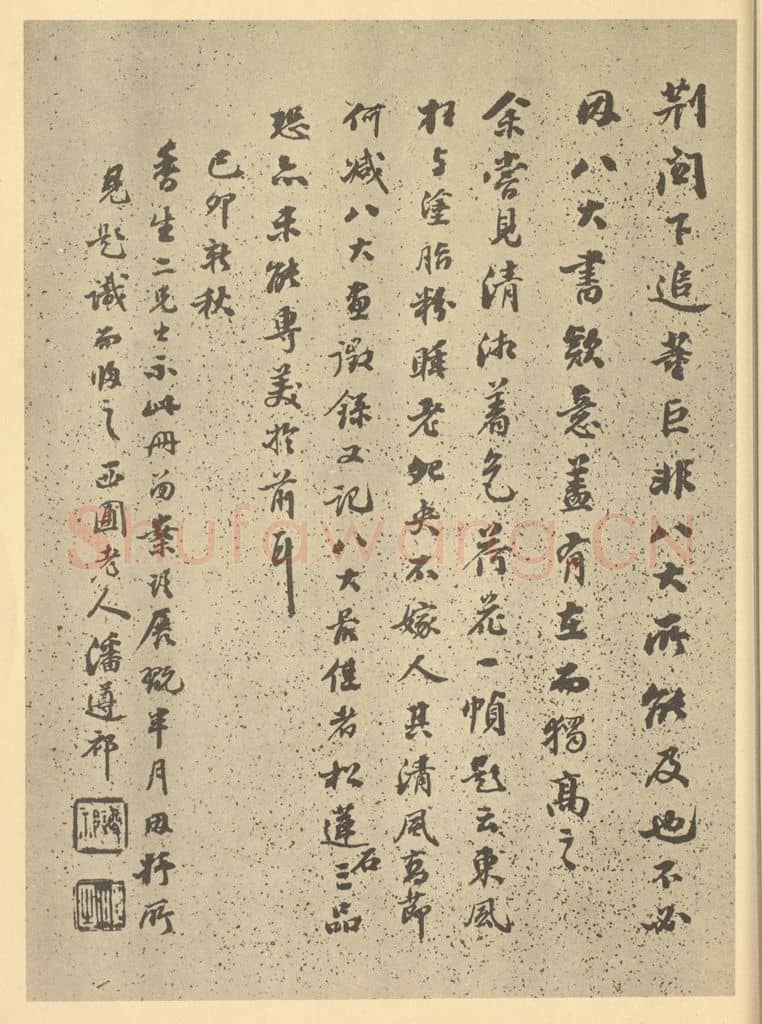 荆關下追董巨非八大所能及也不必
因八大書款意蓋有在而獨高之
余嘗見清湘着色荷花一幀題云東風
狂与塗脂粉睡老鴛央不嫁人其清風高節
何减八大畫徵録又記八大最佳者松蓮石三品
恐亦未能專美於前耳
己卯新秋
香生二兄出示此冊留案頭展玩半月因將所
見題識而歸之西圃老人潘遵祁
Shufawang.CN